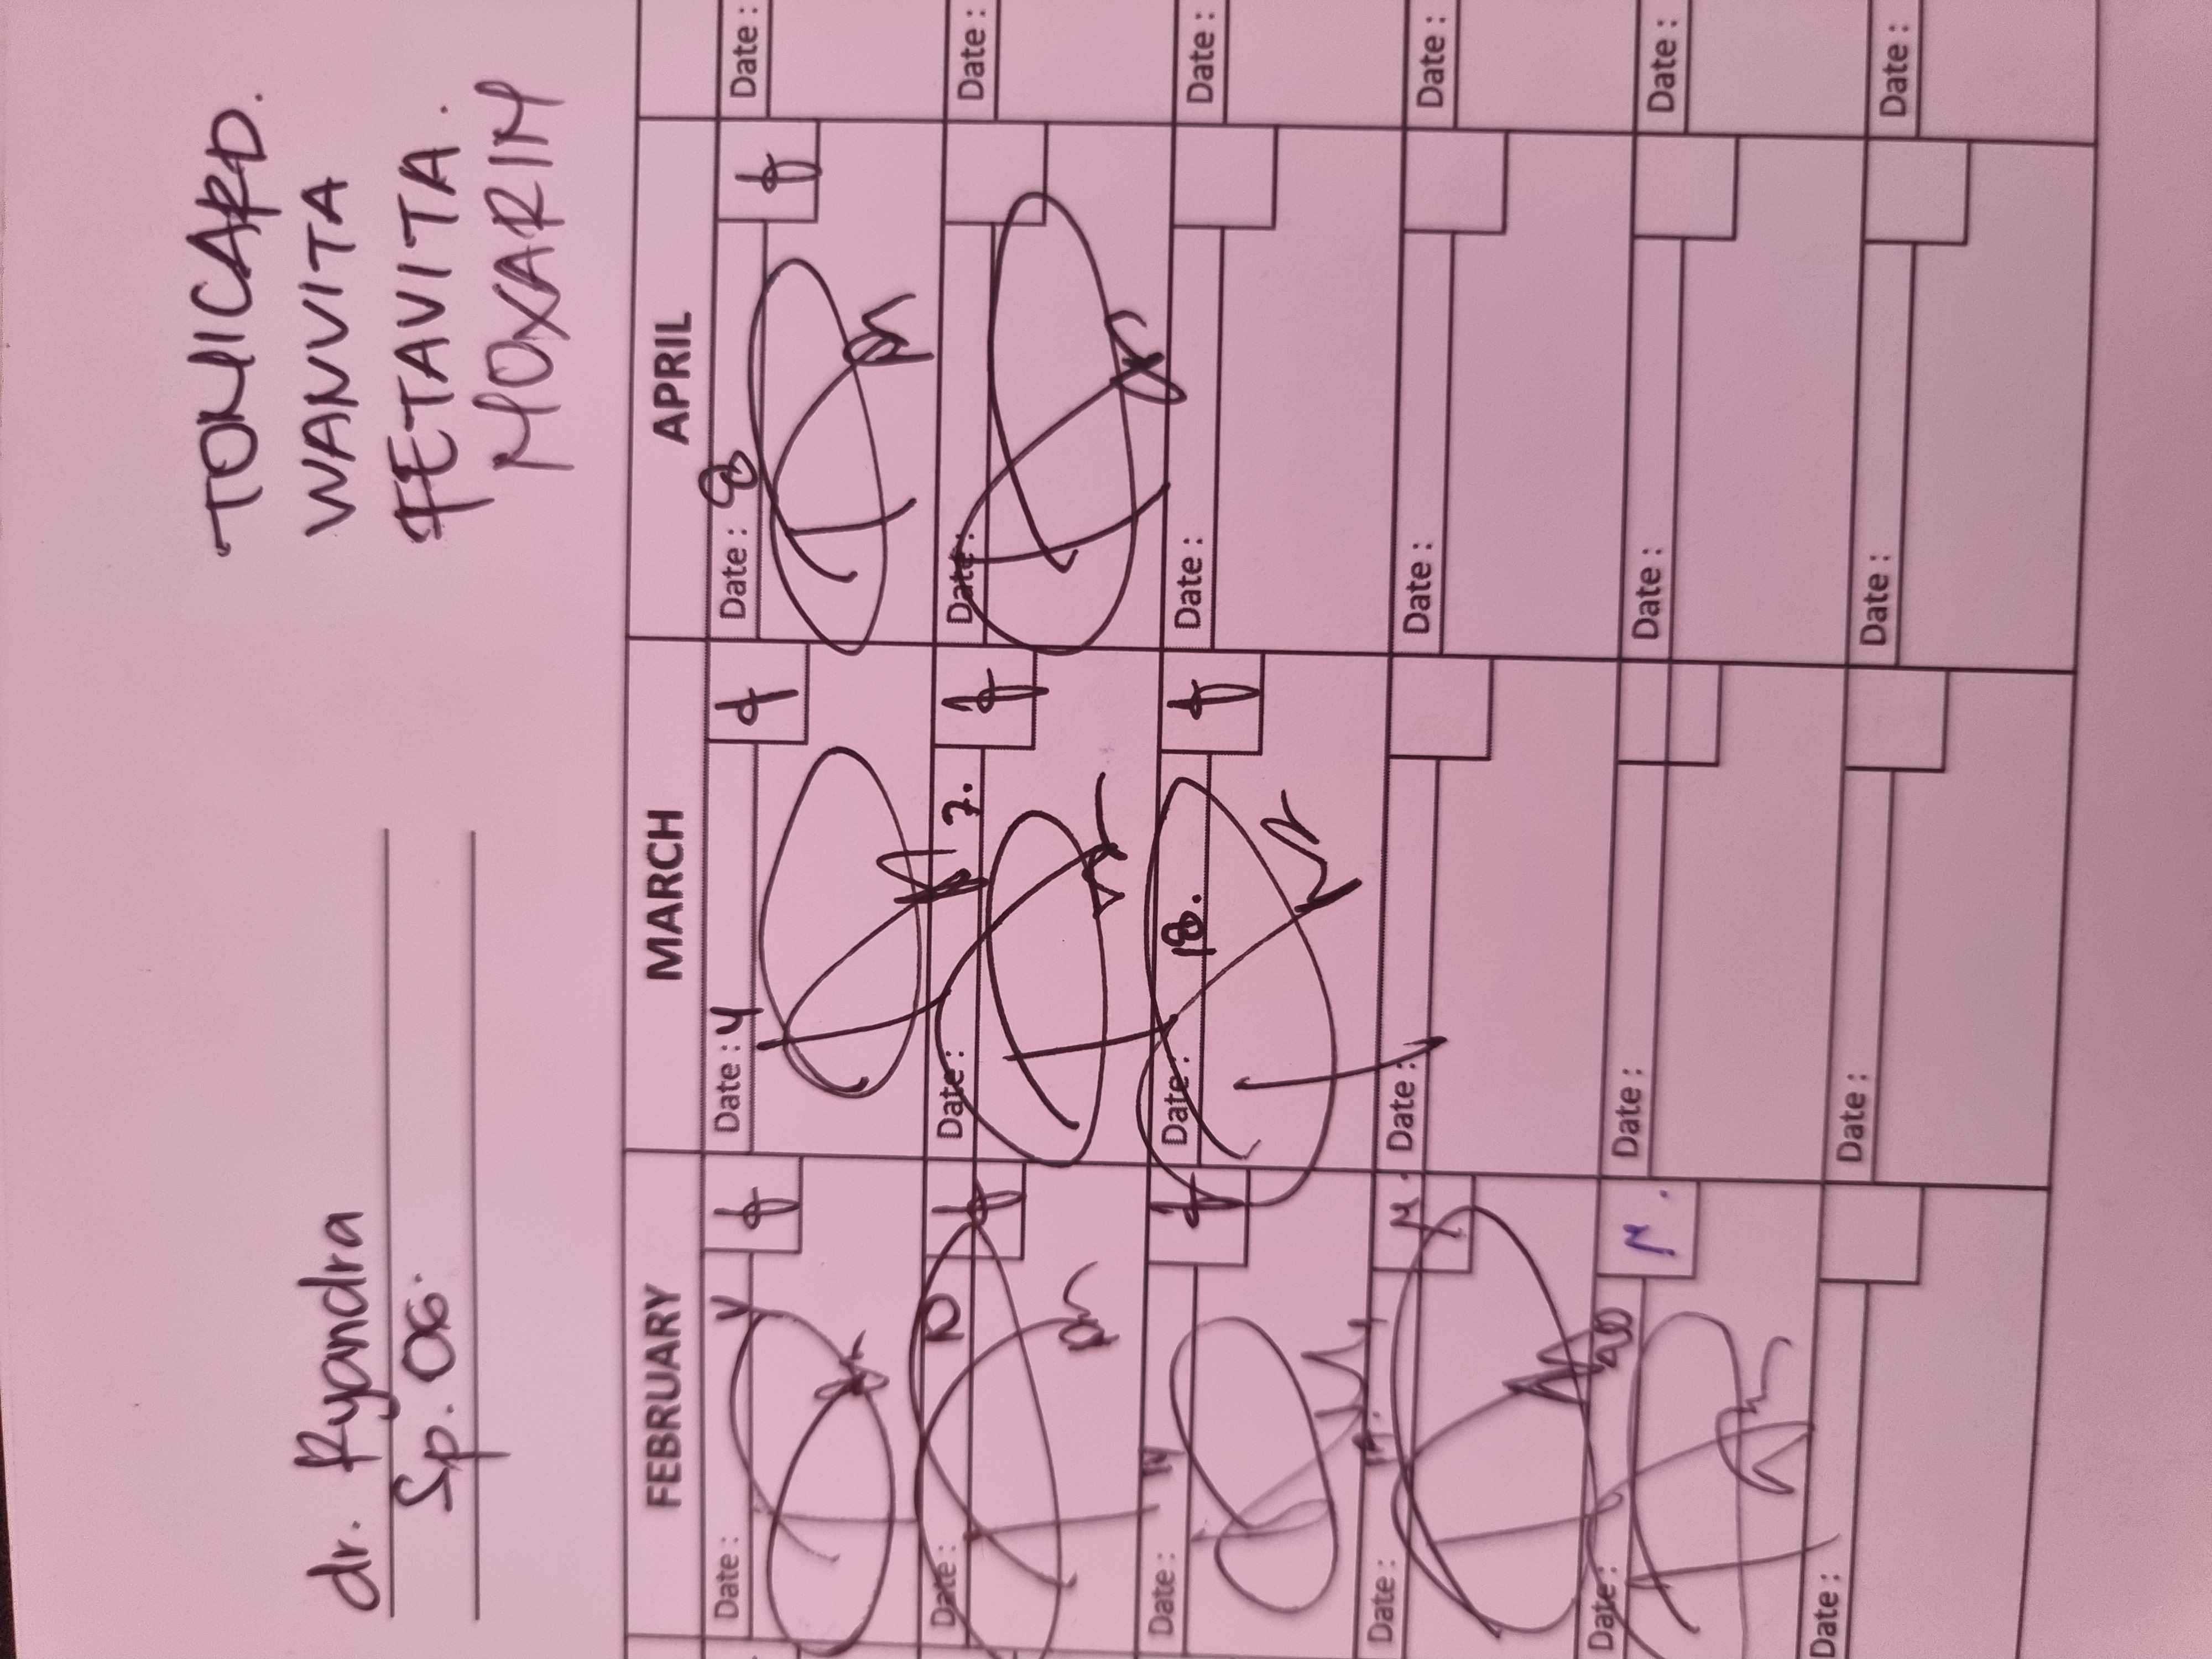 dr. Ryandra
Sp. OG.
TONICARD.
WANVITA
FETAVITA.
MOXARIM
FEBRUARY MARCH APRIL
Date: Date: 4 Date: 8 Date:
Date: 10 Date: 7. Date: Date:
Date: Date: 18. Date: Date:
Date: Date: Date: Date:
Date: Date: Date: Date:
Date: Date: Date: Date: